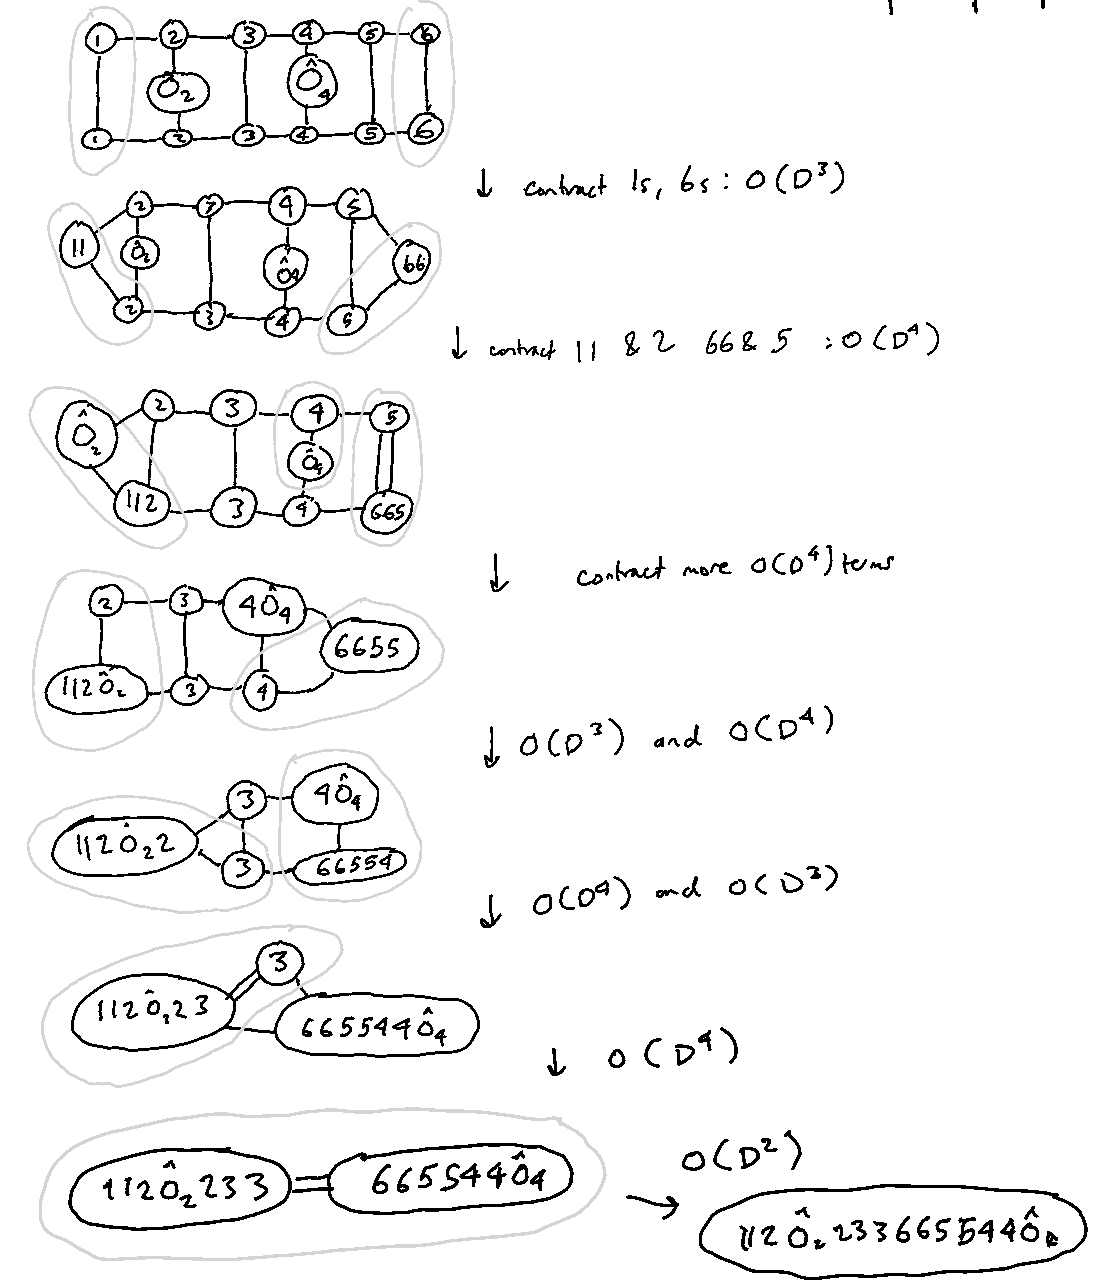 1 2 3 4 5 6
Ô₂ Ô₄
1 2 3 4 5 6
↓ contract 1s, 6s : O(D³)
2 3 4 5
11 Ô₂ Ô4 66
2 3 4 5
↓ contract 11 & 2 66 & 5 : O(D⁴)
Ô₂ 2 3 4 5
Ô₄
112 3 4 665
↓ contract more O(D⁴) terms
2 3 4Ô₄
6655
112Ô₂ 3 4
↓ O(D³) and O(D⁴)
3 4Ô₄
112Ô₂2
3 66554
↓ O(D⁴) and O(D³)
3
112Ô₂23 665544Ô₄
↓ O(D⁴)
112Ô₂233 665544Ô₄
→ O(D²)
112Ô₂233665544Ô₄